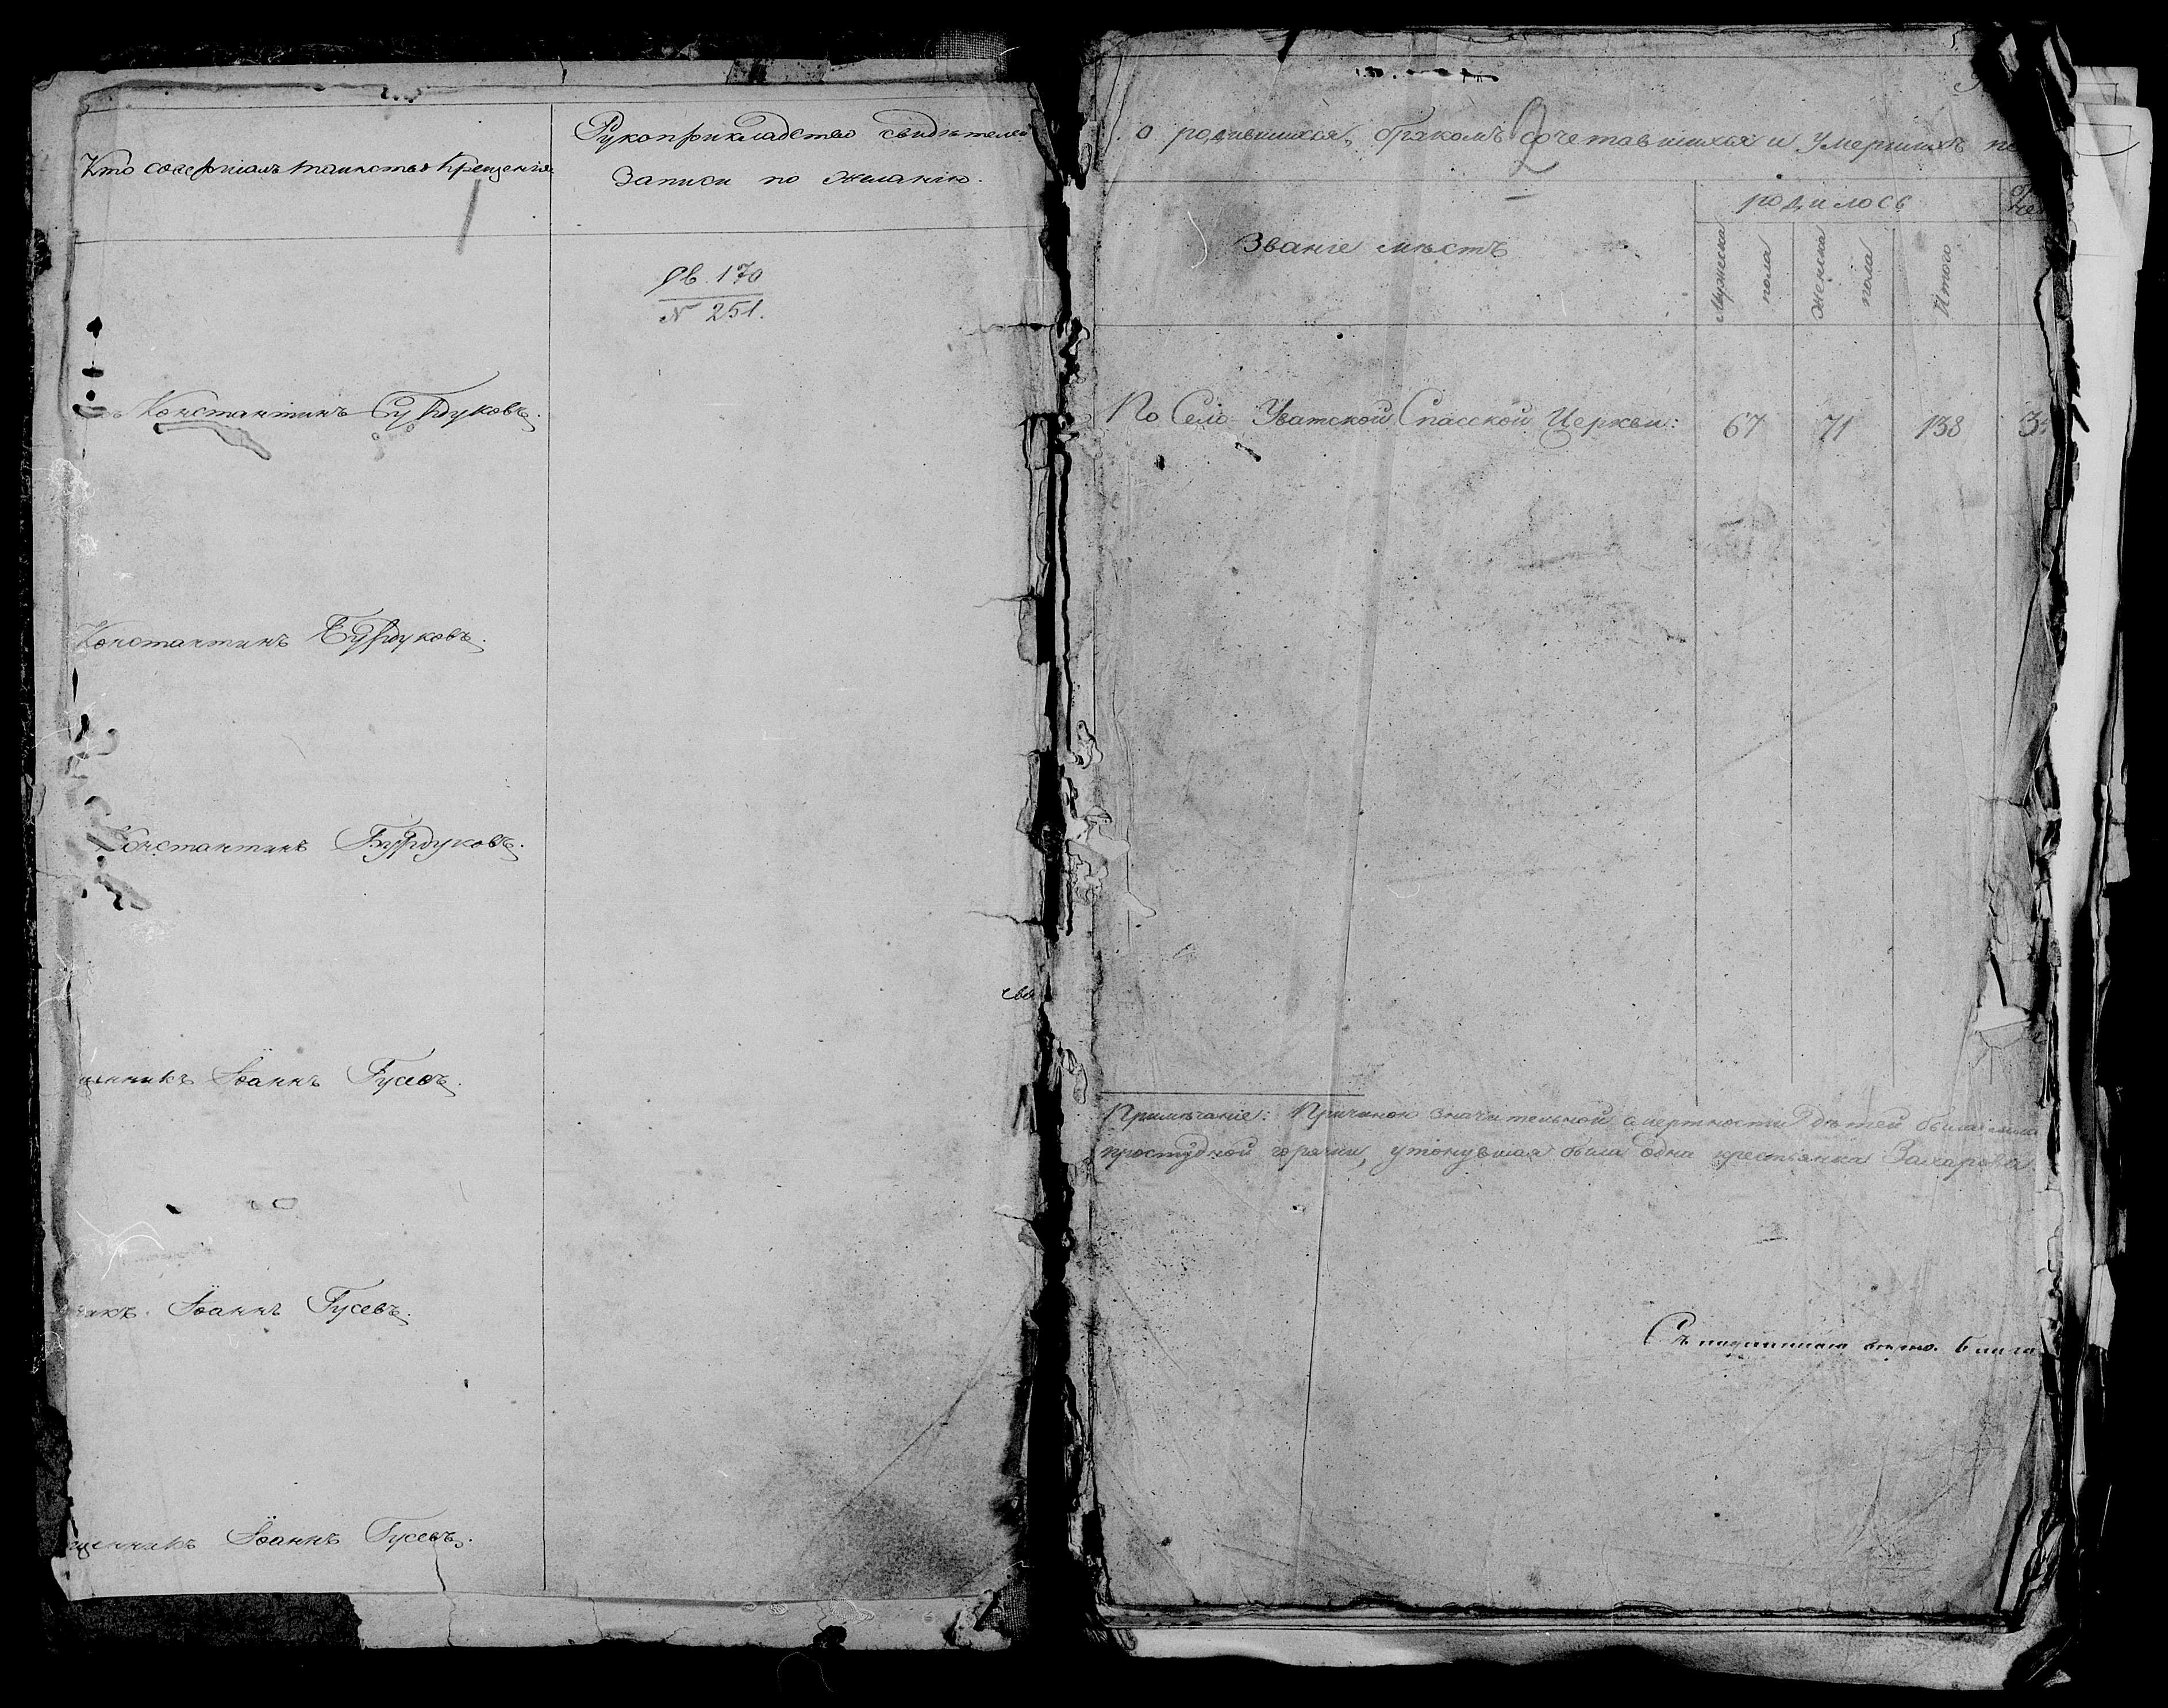 Кто совершалъ таинство Крещенія
Рукоприкладство свидѣтелей
Записи по желанію.
Св. 170
N 251.
Константинъ Бурдуковъ.
Константинъ Бурдуковъ.
Константинъ Бурдуковъ.
щенникъ Іоаннъ Гусевъ.
никъ Іоаннъ Гусевъ.
щенникъ Іоаннъ Гусевъ.
2
о родившихся, бракомъ сочетавшихся и умершихъ по
Званіе мѣстъ
родилось
Мужеска пола
Женска пола
Итого
По Село-Уватской Спасской Церкви: 67 71 138
Примѣчаніе: Причиною значительной смертности дѣтей была
простудной горячки, утонувшая была одна крестьянка Захарова.
Съ подлиннымъ